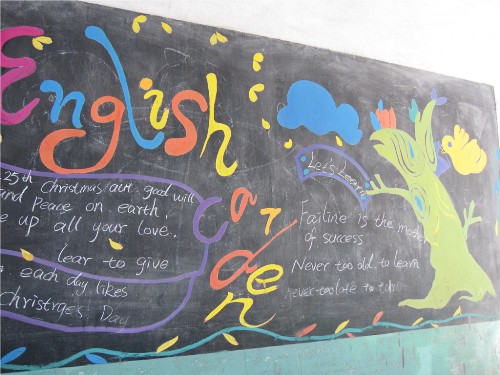 English
Garden
25th Christmas art good will
and peace on earth,
e up all your love.
lear to give
each day likes
christrges Day
Let's Learn
Failine is the mother
of success
Never too old to learn
never too late to turn